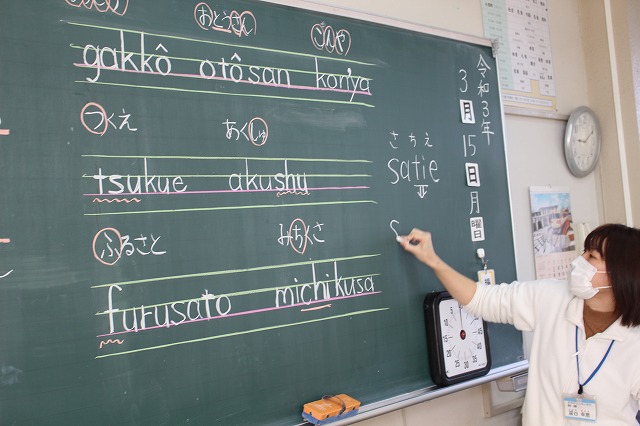 おとうさん
こんや
gakkô otôsan kon'ya
つくえ
あくしゅ
tsukue akushu
ふるさと
みちくさ
furusato michikusa
さちえ
satie
令和3年
3月15日月曜日